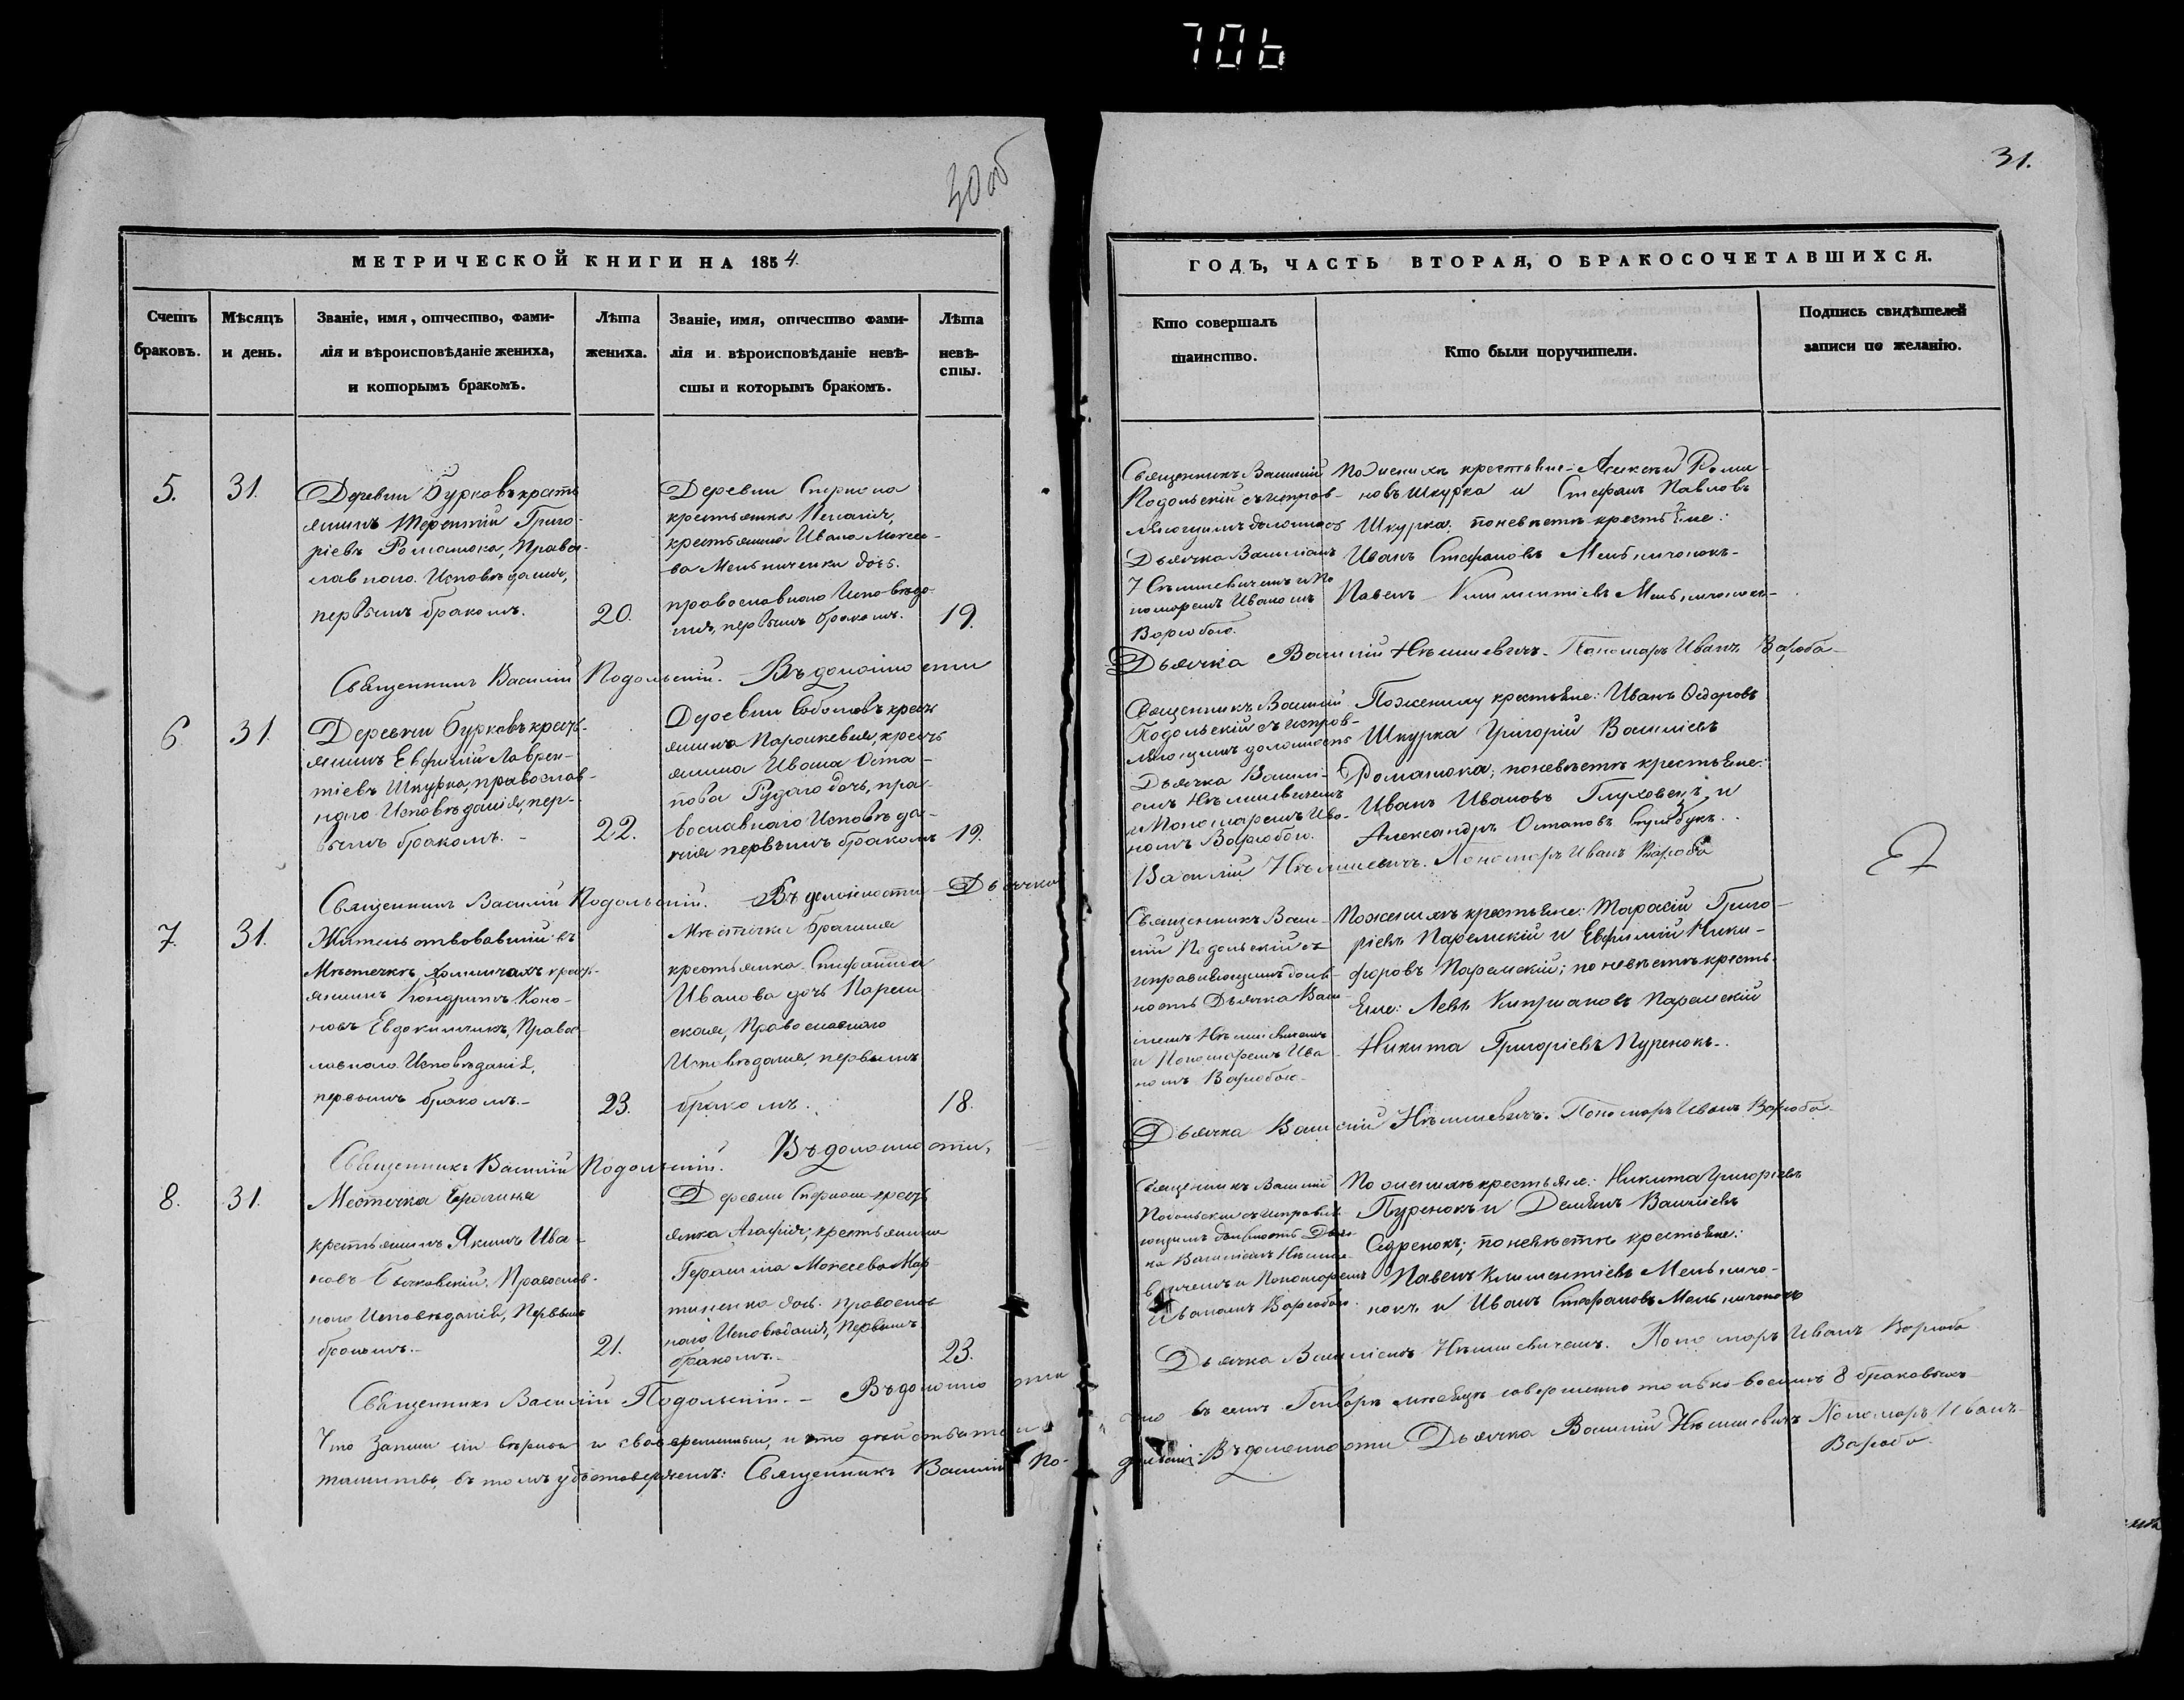 706
30 об
31.
МЕТРИЧЕСКОЙ КНИГИ НА 1854.
Счетъ браковъ.
Мѣсяцъ и день.
Званіе, имя, отчество, фами-
лія и вѣроисповѣданіе жениха,
и которымъ бракомъ.
Лѣта жениха.
Званіе, имя, отчество фами-
лія и вѣроисповѣданіе невѣ-
сты и которымъ бракомъ.
Лѣта невѣ-
сты.
ГОДЪ, ЧАСТЬ ВТОРАЯ, О БРАКОСОЧЕТАВШИХСЯ.
Кто совершалъ
таинство.
Кто были поручители.
Подпись свидѣтелей
записи по желанію.
5.
31.
Деревни Бурковъ крестъ
янинъ Терентій Григо-
ріевъ Романюка, Правос-
лавнаго Исповѣданія,
первымъ бракомъ.
20.
Деревни
крестьянка
крестьянина Ивана Моисее-
ва Мельниченки дочь.
православнаго Исповѣда-
нія, первымъ бракомъ.
19.
Священникъ Василій
Подольскій съ исправ-
ляющимъ должность
Дьячка Василіемъ
Нѣмшевичемъ и По
номаремъ Иваномъ
Варюбою.
По женихѣ крестьяне: Алексѣй Рома-
новъ Шкурка и Стефанъ Павловъ
Шкурка; по невѣстѣ крестьяне:
Иванъ Стефановъ Мельниченокъ
Павелъ Климентіевъ Мельниченокъ
Священникъ Василій Подольскій. Въ должности
Дьячка Василій Нѣмшевичъ. Пономарь Иванъ Варюба
6
31.
Деревни Бурковъ крестъ-
янинъ Евфимій Лаврен-
тіевъ Шкурка, православ-
наго Исповѣданія, пер-
вымъ бракомъ.
22.
Деревни Соболовъ крест
янина Параскевія, крестъ
янина Ивана Оста-
пова Рудаго дочь, пра-
вославнаго Исповѣда-
нія первымъ бракомъ
19.
Священникъ Василій
Подольскій съ исправ-
ляющимъ должность
Дьячка Васили-
емъ Нѣмшевичемъ
и Пономаремъ Ива-
номъ Варюбою.
По жениху крестьяне: Иванъ Ѳедоровъ
Шкурка Григорій Василіевъ
Романюка; по невѣстѣ крестьяне:
Иванъ Ивановъ Глуховецъ и
Александръ Остаповъ
Священникъ Василій Подольскій. Въ должности Дьячка
Василій Нѣмшевичъ. Пономарь Иванъ Варюба
7.
31.
Жительствовавшій въ
Мѣстечкѣ крестъ-
янинъ Кондратъ Коно-
новъ Евдокимчикъ, Правос-
лавнаго Исповѣданія,
первымъ бракомъ.
23.
Мѣстечка Брагиня
крестьянка Стефанида
Иванова дочь Парем
ская, Православнаго
Исповѣданія, первымъ
бракомъ.
18.
Священникъ Васи-
лій Подольскій съ
исправляющимъ долж-
ность Дьячка Васи-
ліемъ Нѣмшевичемъ
и Пономаремъ Ива
номъ Варюбою.
По женихѣ крестьяне: Тарасій Григо-
ріевъ Паремскій и Евфимій Ники-
форовъ Паремскій; по невѣстѣ кресть-
яне: Левъ Кипріановъ Паремскій
Никита Григоріевъ Пуренокъ.
Священникъ Василій Подольскій. Въ должности
Дьячка Василій Нѣмшевичъ. Пономарь Иванъ Варюба
8.
31.
Местечка Брагиня
крестьянинъ Якимъ Ива-
новъ Бычковскій, Православ-
наго Исповѣданія, Первымъ
бракомъ.
21.
Деревни крестъ
янка Агафія; крестьянина
Герасима Моисеева Мар-
тиненка дочь. православ
наго Исповѣданія, Первымъ
бракомъ.
23.
Священникъ Василій
Подольскій съ исправля-
ющимъ должность Дьяч-
ка Василіемъ Нѣмше-
вичемъ и Пономаремъ
Иваномъ Варюбою.
По женихѣ крестьяне: Никита Григоріевъ
Пуренокъ и Демьянъ Василіевъ
Седренокъ; по невѣстѣ крестьяне:
Павелъ Климентіевъ Мельниче-
нокъ и Иванъ Стефановъ Мельниченокъ
Священникъ Василій Подольскій. Въ должности
Дьячка Василіемъ Нѣмшевичемъ. Пономарь Иванъ Варюба
Что записи сіи вѣрны и своевременны, и что дѣйствитель
но въ семъ Генварѣ мѣсяцѣ совершено только восемъ 8 браковыхъ
таинствъ, въ томъ удостовѣряемъ: Священникъ Василій По-
дольскій Въ должности Дьячка Василій Нѣмшевичъ Пономарь Иванъ
Варюба.